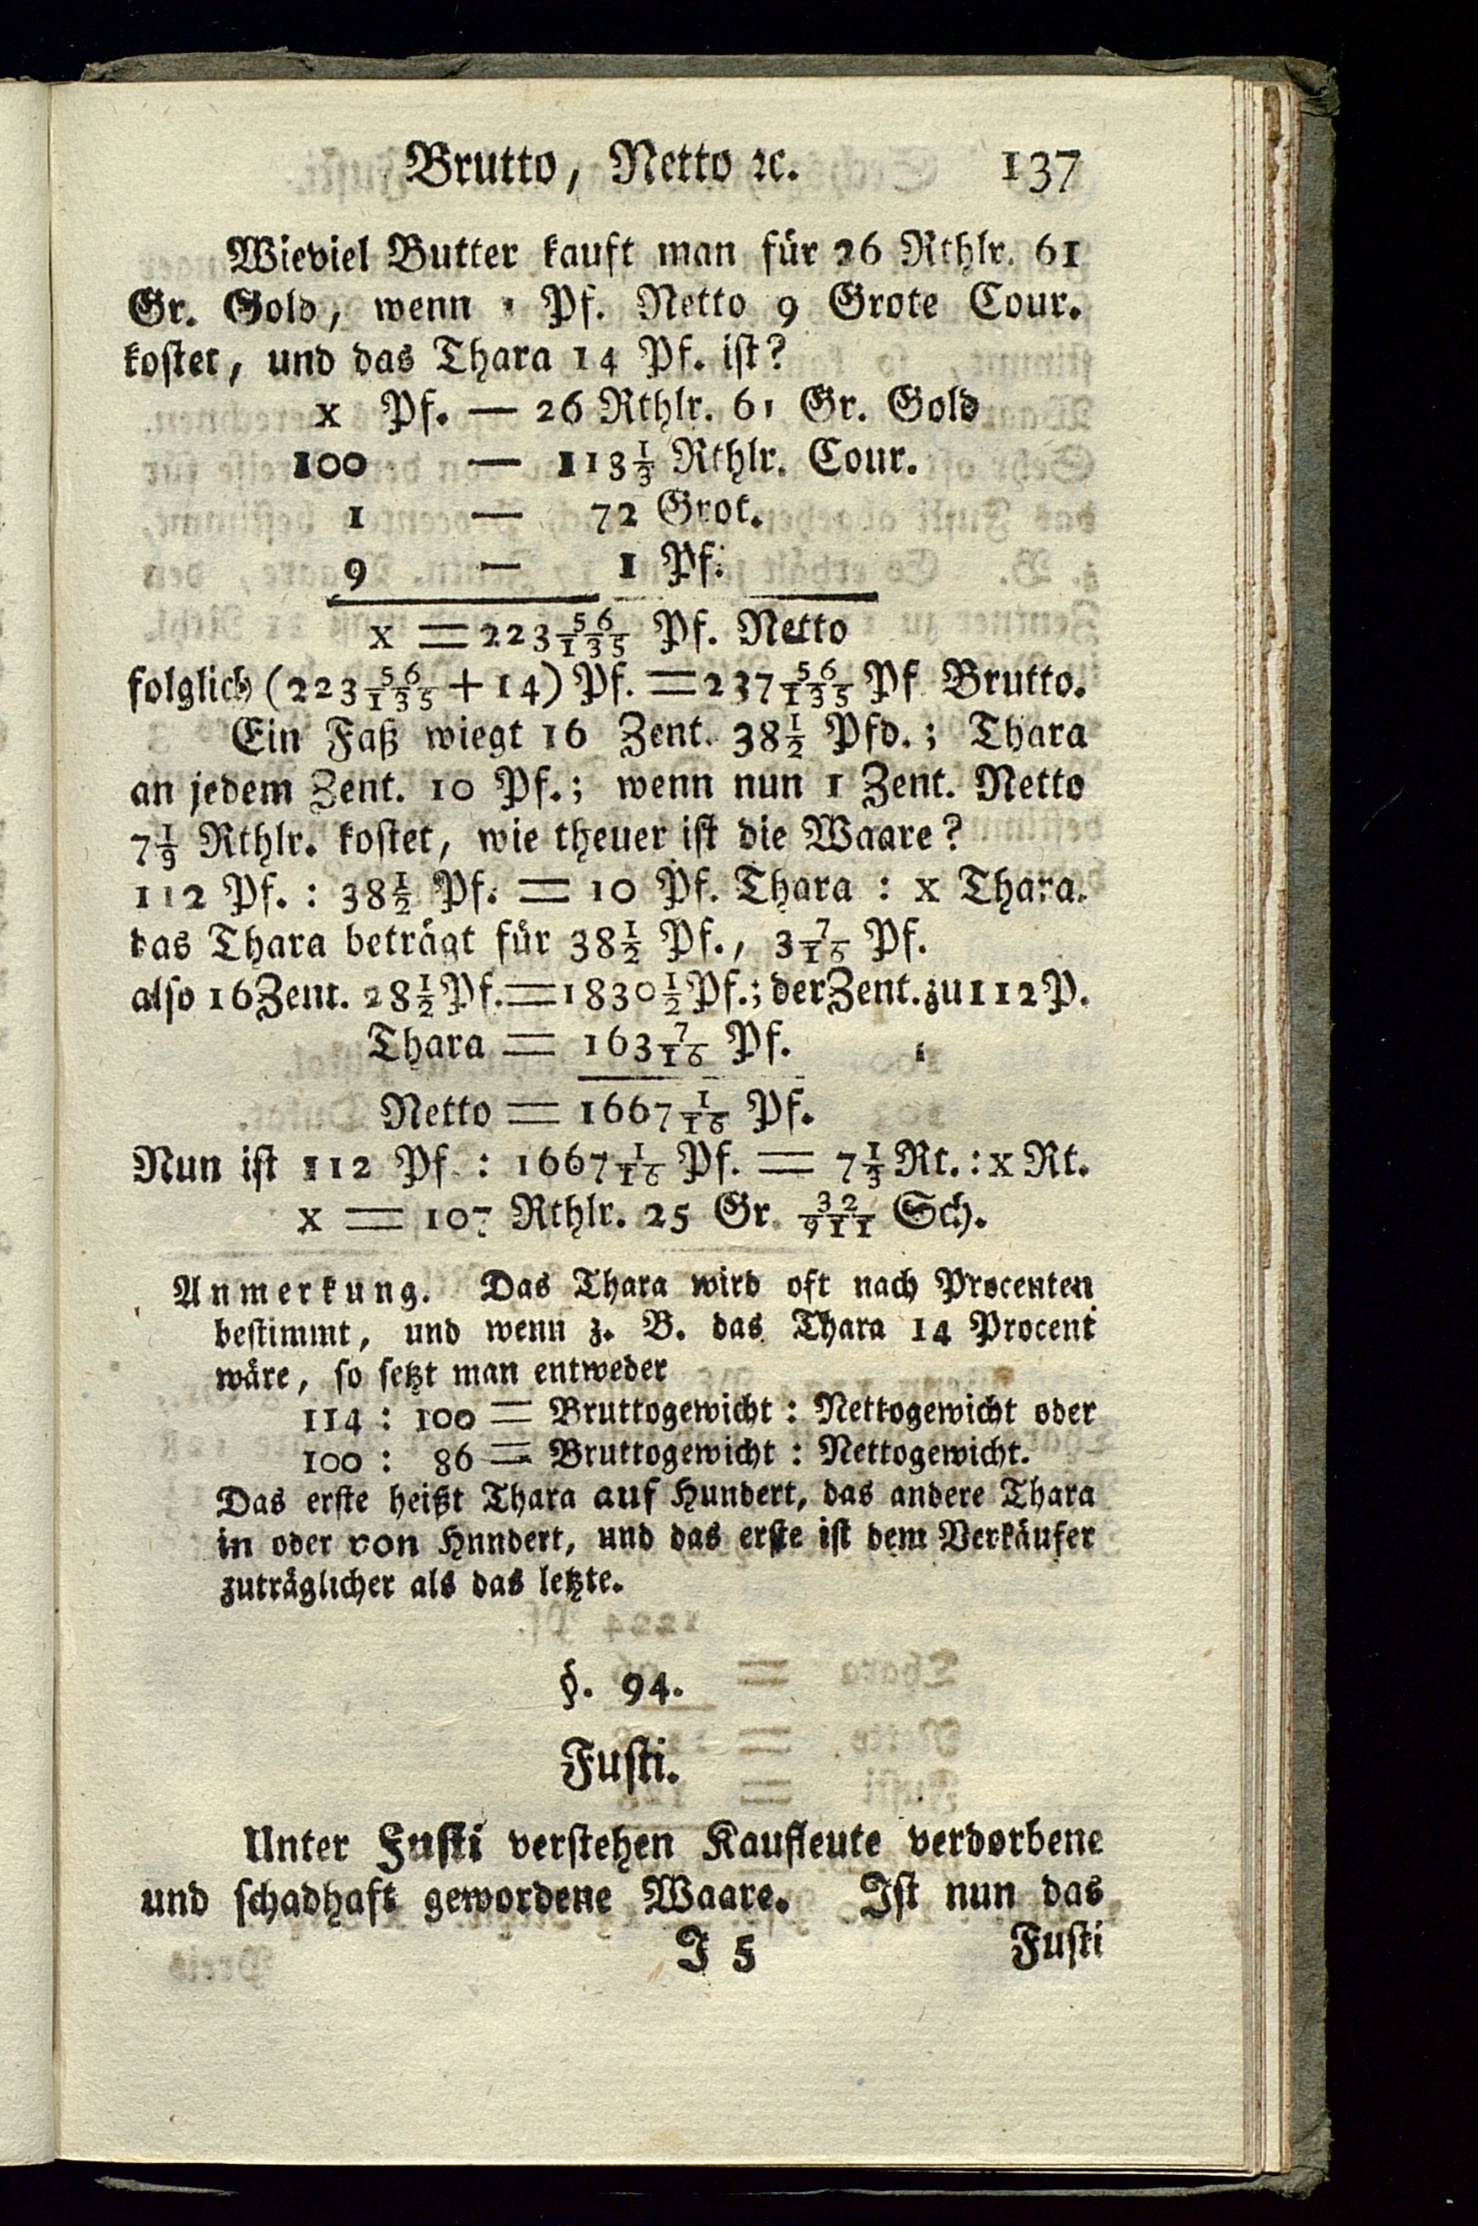 Brutto, Netto ꝛc. 137
Wieviel Butter kauft man für 26 Rthlr. 61
Gr. Gold, wenn 1 Pf. Netto 9 Grote Cour.
kostet, und das Thara 14 Pf. ist?
x Pf. — 26 Rthlr. 61 Gr. Gold
100 — 113 1/3 Rthlr. Cour.
1 — 72 Grot.
9 — 1 Pf.
x = 223 56/135 Pf. Netto
folglich (223 56/135 + 14) Pf. = 237 56/135 Pf Brutto.
Ein Faß wiegt 16 Zent. 38 1/2 Pfd.; Thara
an jedem Zent. 10 Pf.; wenn nun 1 Zent. Netto
7 1/9 Rthlr. kostet, wie theuer ist die Waare?
112 Pf. : 38 1/2 Pf. = 10 Pf. Thara : x Thara.
das Thara beträgt für 38 1/2 Pf., 3 7/16 Pf.
also 16 Zent. 28 1/2 Pf. = 1830 1/2 Pf.; der Zent. zu 112 P.
Thara = 163 7/16 Pf.
Netto = 1667 1/16 Pf.
Nun ist 112 Pf. : 1667 1/16 Pf. = 7 1/3 Rt. : x Rt.
x = 107 Rthlr. 25 Gr. 32/911 Sch.
Anmerkung. Das Thara wird oft nach Procenten
bestimmt, und wenn z. B. das Thara 14 Procent
wäre, so setzt man entweder
114 : 100 = Bruttogewicht : Nettogewicht oder
100 : 86 = Bruttogewicht : Nettogewicht.
Das erste heißt Thara auf Hundert, das andere Thara
in oder von Hnndert, und das erste ist dem Verkäufer
zuträglicher als das letzte.
§. 94.
Fusti.
Unter Fusti verstehen Kaufleute verdorbene
und schadhaft gewordene Waare. Ist nun das
J 5 Fusti